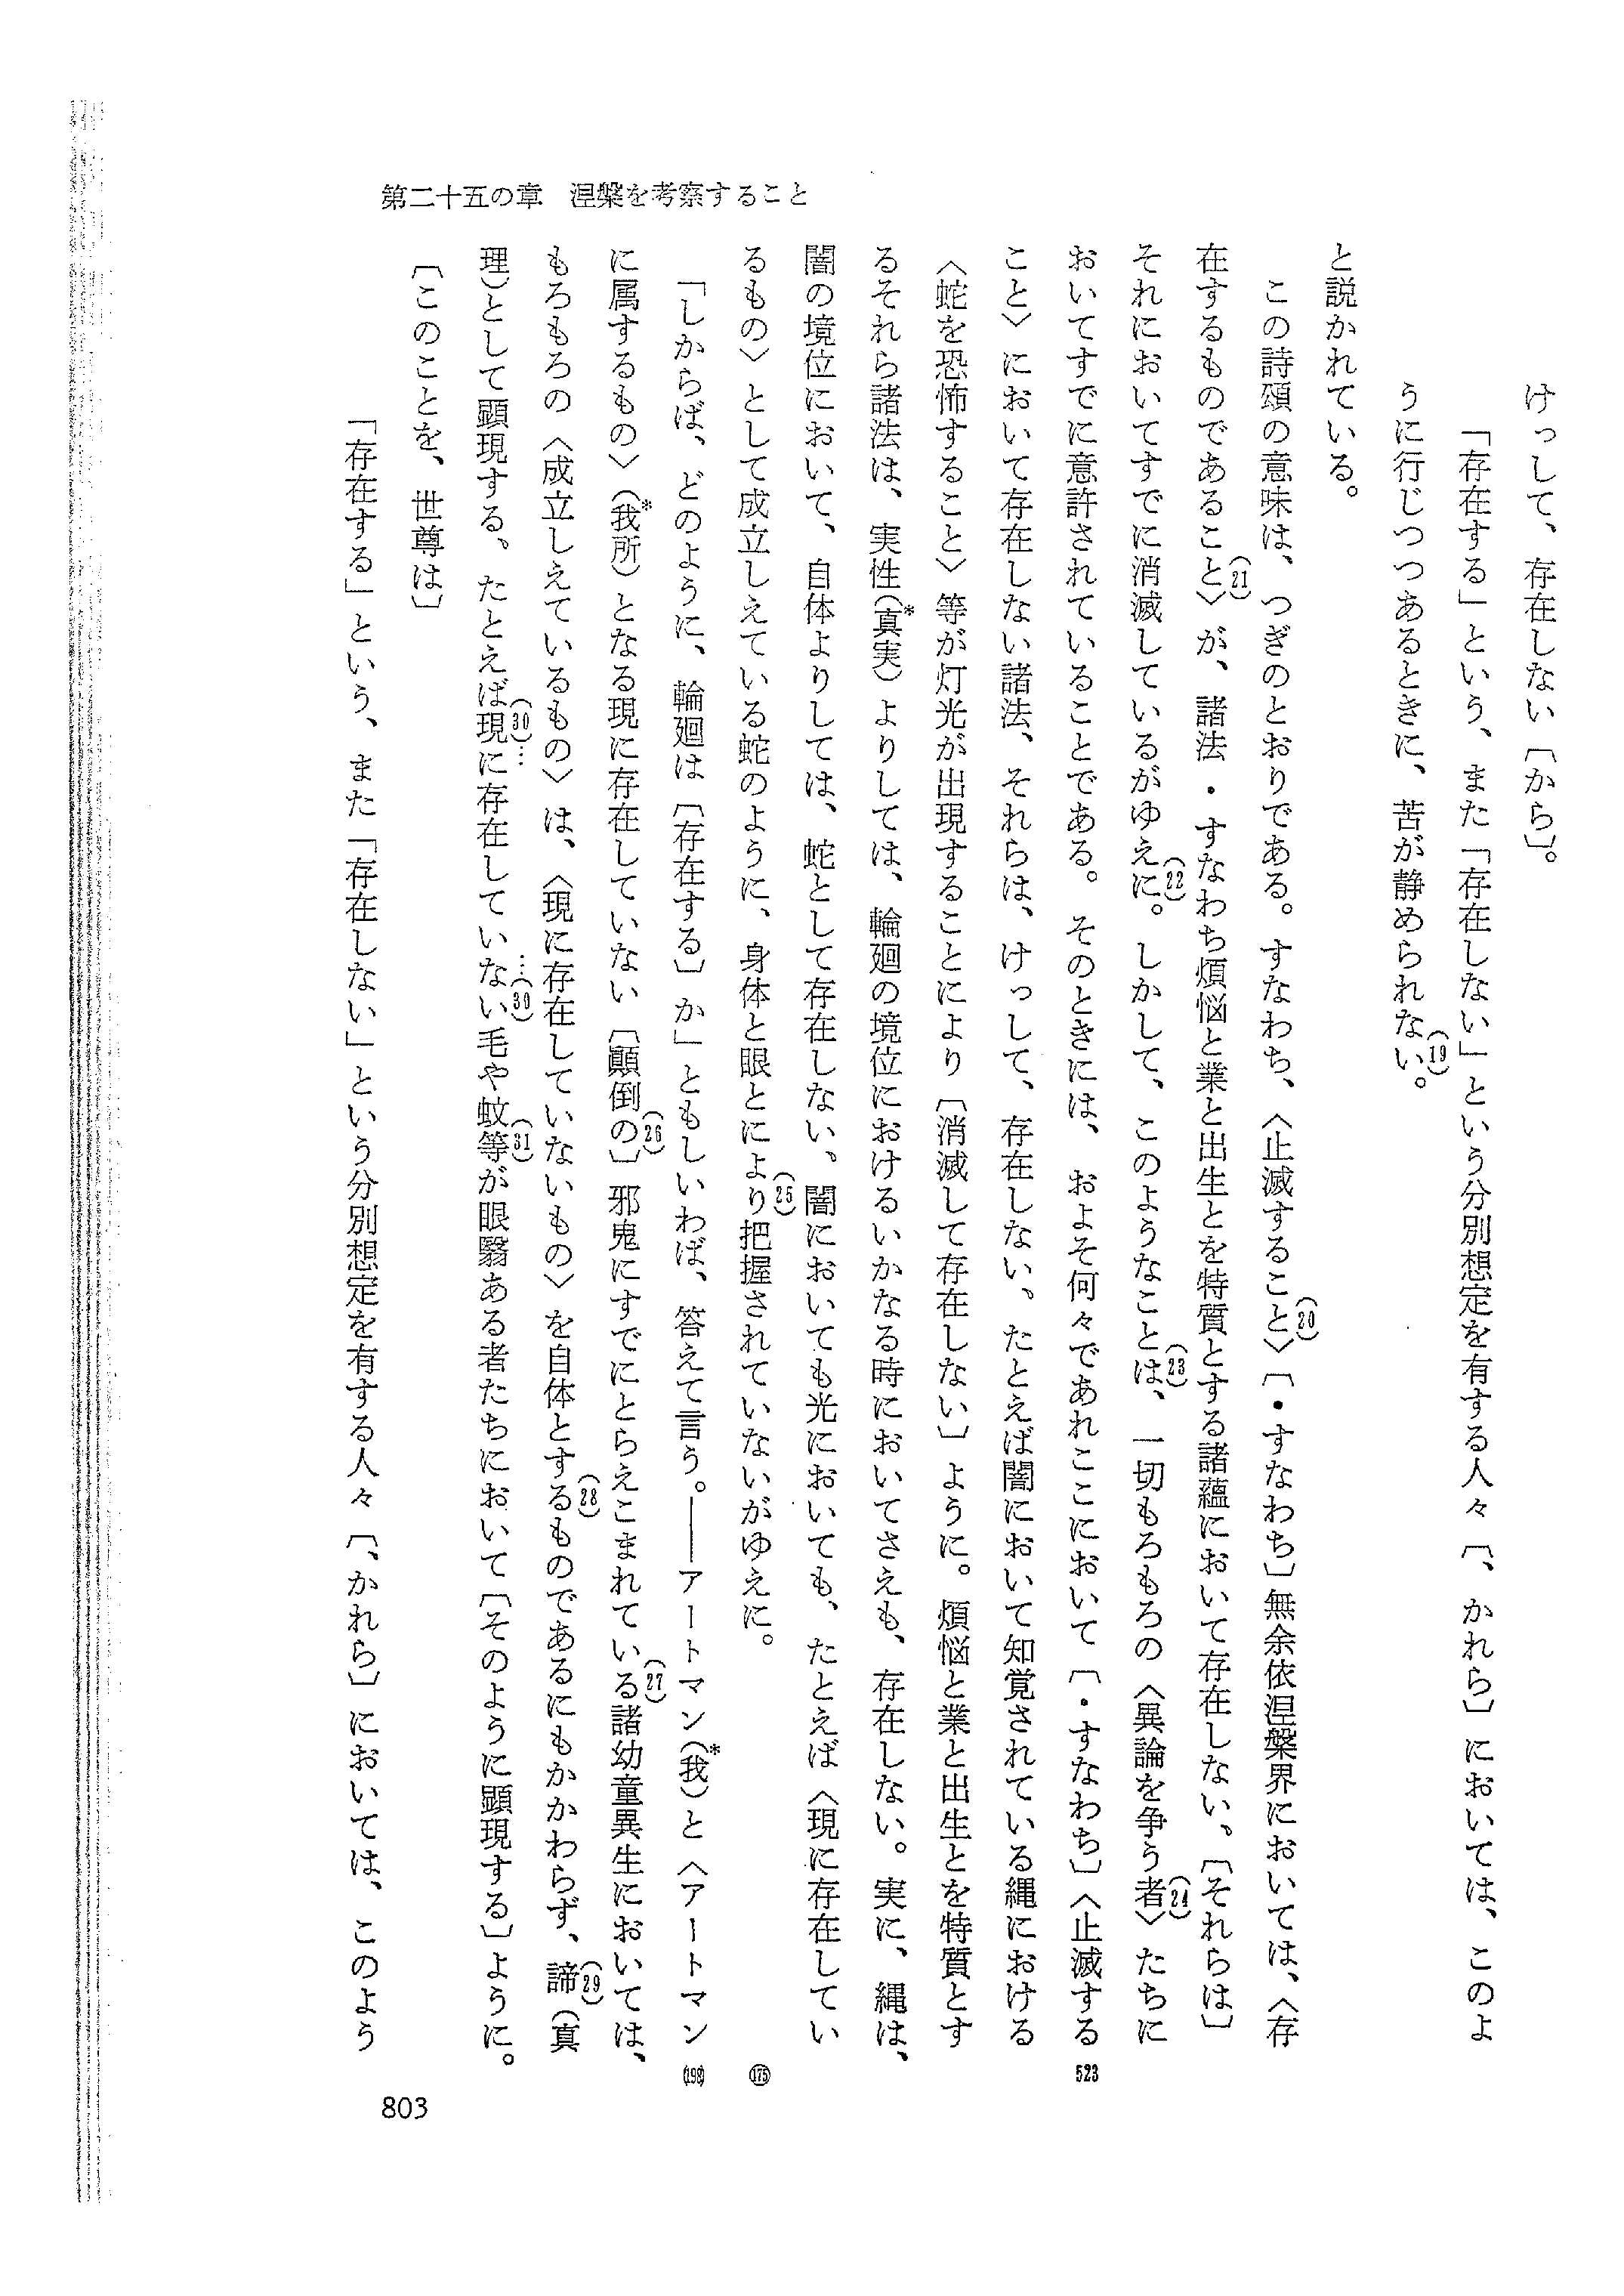 第二十五の章　涅槃を考察すること
けっして、存在しない〔から〕。
「存在する」という、また「存在しない」という分別想定を有する人々〔、かれら〕においては、このよ
うに行じつつあるときに、苦が静められない(19)。
と説かれている。
この詩頌の意味は、つぎのとおりである。すなわち、〈止滅すること(20)〉〔・すなわち〕無余依涅槃界においては、〈存
在するものであること(21)〉が、諸法・すなわち煩悩と業と出生とを特質とする諸蘊において存在しない、〔それらは〕
それにおいてすでに消滅しているがゆえに(22)。しかして、このようなことは(23)、一切もろもろの〈異論を争う者(24)〉たちに
おいてすでに意許されていることである。そのときには、およそ何々であれここにおいて〔・すなわち〕〈止滅する
こと〉において存在しない諸法、それらは、けっして、存在しない。たとえば闇において知覚されている縄における
〈蛇を恐怖すること〉等が灯光が出現することにより〔消滅して存在しない〕ように。煩悩と業と出生とを特質とす
るそれら諸法は、実性(真実*)よりしては、輪廻の境位におけるいかなる時においてさえも、存在しない。実に、縄は、
闇の境位において、自体よりしては、蛇として存在しない、闇においても光においても、たとえば〈現に存在してい
るもの〉として成立しえている蛇のように、身体と眼とにより(25)把握されていないがゆえに。
「しからば、どのように、輪廻は〔存在する〕か」ともしいわば、答えて言う。――アートマン(我*)と〈アートマン
に属するもの〉(我所*)となる現に存在していない〔顚倒の(26)〕邪鬼にすでにとらえこまれている(27)諸幼童異生においては、
もろもろの〈成立しえているもの〉は、〈現に存在していないもの〉を自体とする(28)ものであるにもかかわらず、諦(29)(真
理)として顕現する、たとえば(30)…現に存在していない…(30)毛や蚊等(31)が眼翳ある者たちにおいて〔そのように顕現する〕ように。
〔このことを、世尊は〕
「存在する」という、また「存在しない」という分別想定を有する人々〔、かれら〕においては、このよう
523
(175)
(198)
803